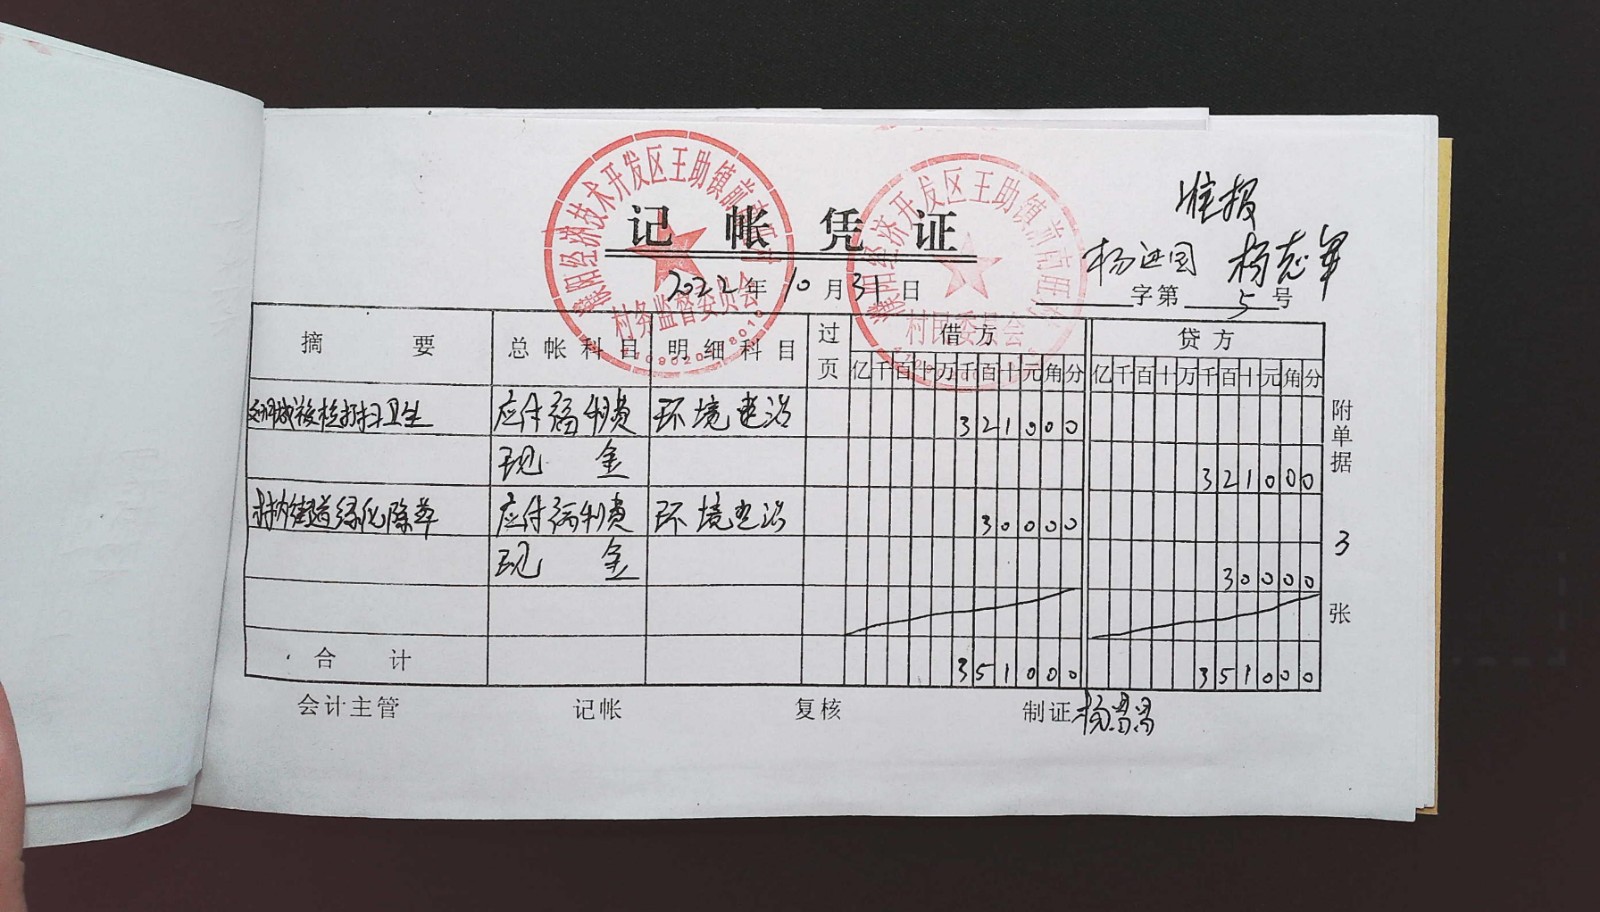 准报
杨进国 杨志军
记帐凭证
2022年10月31日
字第5号
濮阳经济技术开发区王助镇前南旺村
村务监督委员会
濮阳经济开发区王助镇前南旺村
村民委员会
摘要 总帐科目 明细科目 过页 借方 贷方
亿千百十万千百十元角分 亿千百十万千百十元角分
打扫卫生 应付福利费 环境整治 321000
现金 321000
村内街道绿化除草 应付福利费 环境整治 30000
现金 30000
合计 351000 351000
附单据3张
会计主管 记帐 复核 制证